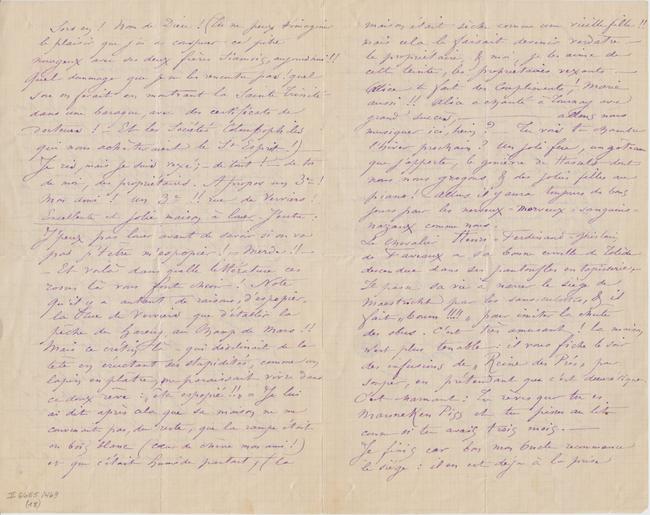 Sors en ! Nom de Dieu ! (Tu ne peux t'imaginer
le plaisir que j'ai à conspuer ce père
nuageux avec ses deux frères Siamois, aujourd'hui !!
Quel dommage que je ne les rencontre pas ! quel
sou on ferait en montrant la Sainte Trinité
dans une baraque avec des certificats de
docteurs ! - Et les Sociétés Colombophiles
qui nous achèteraient le St Esprit !)
Je ris, mais je suis vexé, - de tout ! - de toi
de moi, des propriétaires. A propos un 3me !
Mon ami ! un 3me !! rue de Verviers !
Excellente et jolie maison à louer. J'entre.
J'peux pas louer avant de savoir si on va
pas p't'etre m'expopier ! - Merde !! -
- Et voilà dans quelle littérature ces
zosons là vous font choir ! Note
qu'il y a autant de raisons d'expopier
la Rue de Verviers que d'établir la
pêche du Hareng au Champ de Mars !!
Mais ce crétin là - qui dodelinait de la
tête en eructant ses stupidités, comme un
lapin en plâtre, me paraissait vivre dans
ce doux rêve : « ête expopié !! » Je lui
ai dit après cela que sa maison ne me
convenait pas, du reste, que la rampe était
en bois blanc (cœur de chêne mon ami !)
et que c'était humide partout, (la
maison était sèche comme une vieille fille !!
mais cela le faisait devenir verdâtre -
le propriétaire, & moi, je les aime de
cette teinte, les propriétaires vexants. -
Alice te fait des Compliments, Marie
aussi !! Alice a chanté à Tournay avec
grand succès, - allons nous
musiquer ici, hein ? - Tu vois ta chambre
l'hiver prochain ? Un joli feu, un gâteau
que j'apporte, le genièvre de Hasselt dont
nous nous grogons, & des jolies filles au
piano ! Allons il y aura toujours de bons
jours pour les nerveux - morveux - sanguins -
nazaux comme nous.
Le Chevalier Henri - Ferdinand - Ghislain
de Faveaux a sa bonne enville de Tolède
descendue dans ses pantoufles en tapisserie.
Il passe sa vie à narrer le siège de
Maestricht par les sans culottes, & il
fait « boum !!!! » pour imiter la chute
des obus. C'est très amusant ! La maison
n'est plus tenable : il vous fiche le soir
des infusions de « Reine des Prés » pour
souper, en prétendant que c'est diurétique.
C'est charmant : Tu rêves que tu es
Manneken Piss et tu pisses au lit
comme si tu avais trois mois. -
Je finis car bon mon oncle recommence
le siège : il en est déjà à la prise
II 6655/469
(18)